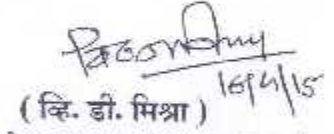 16/4/15
( व्हि. डी. मिश्रा )